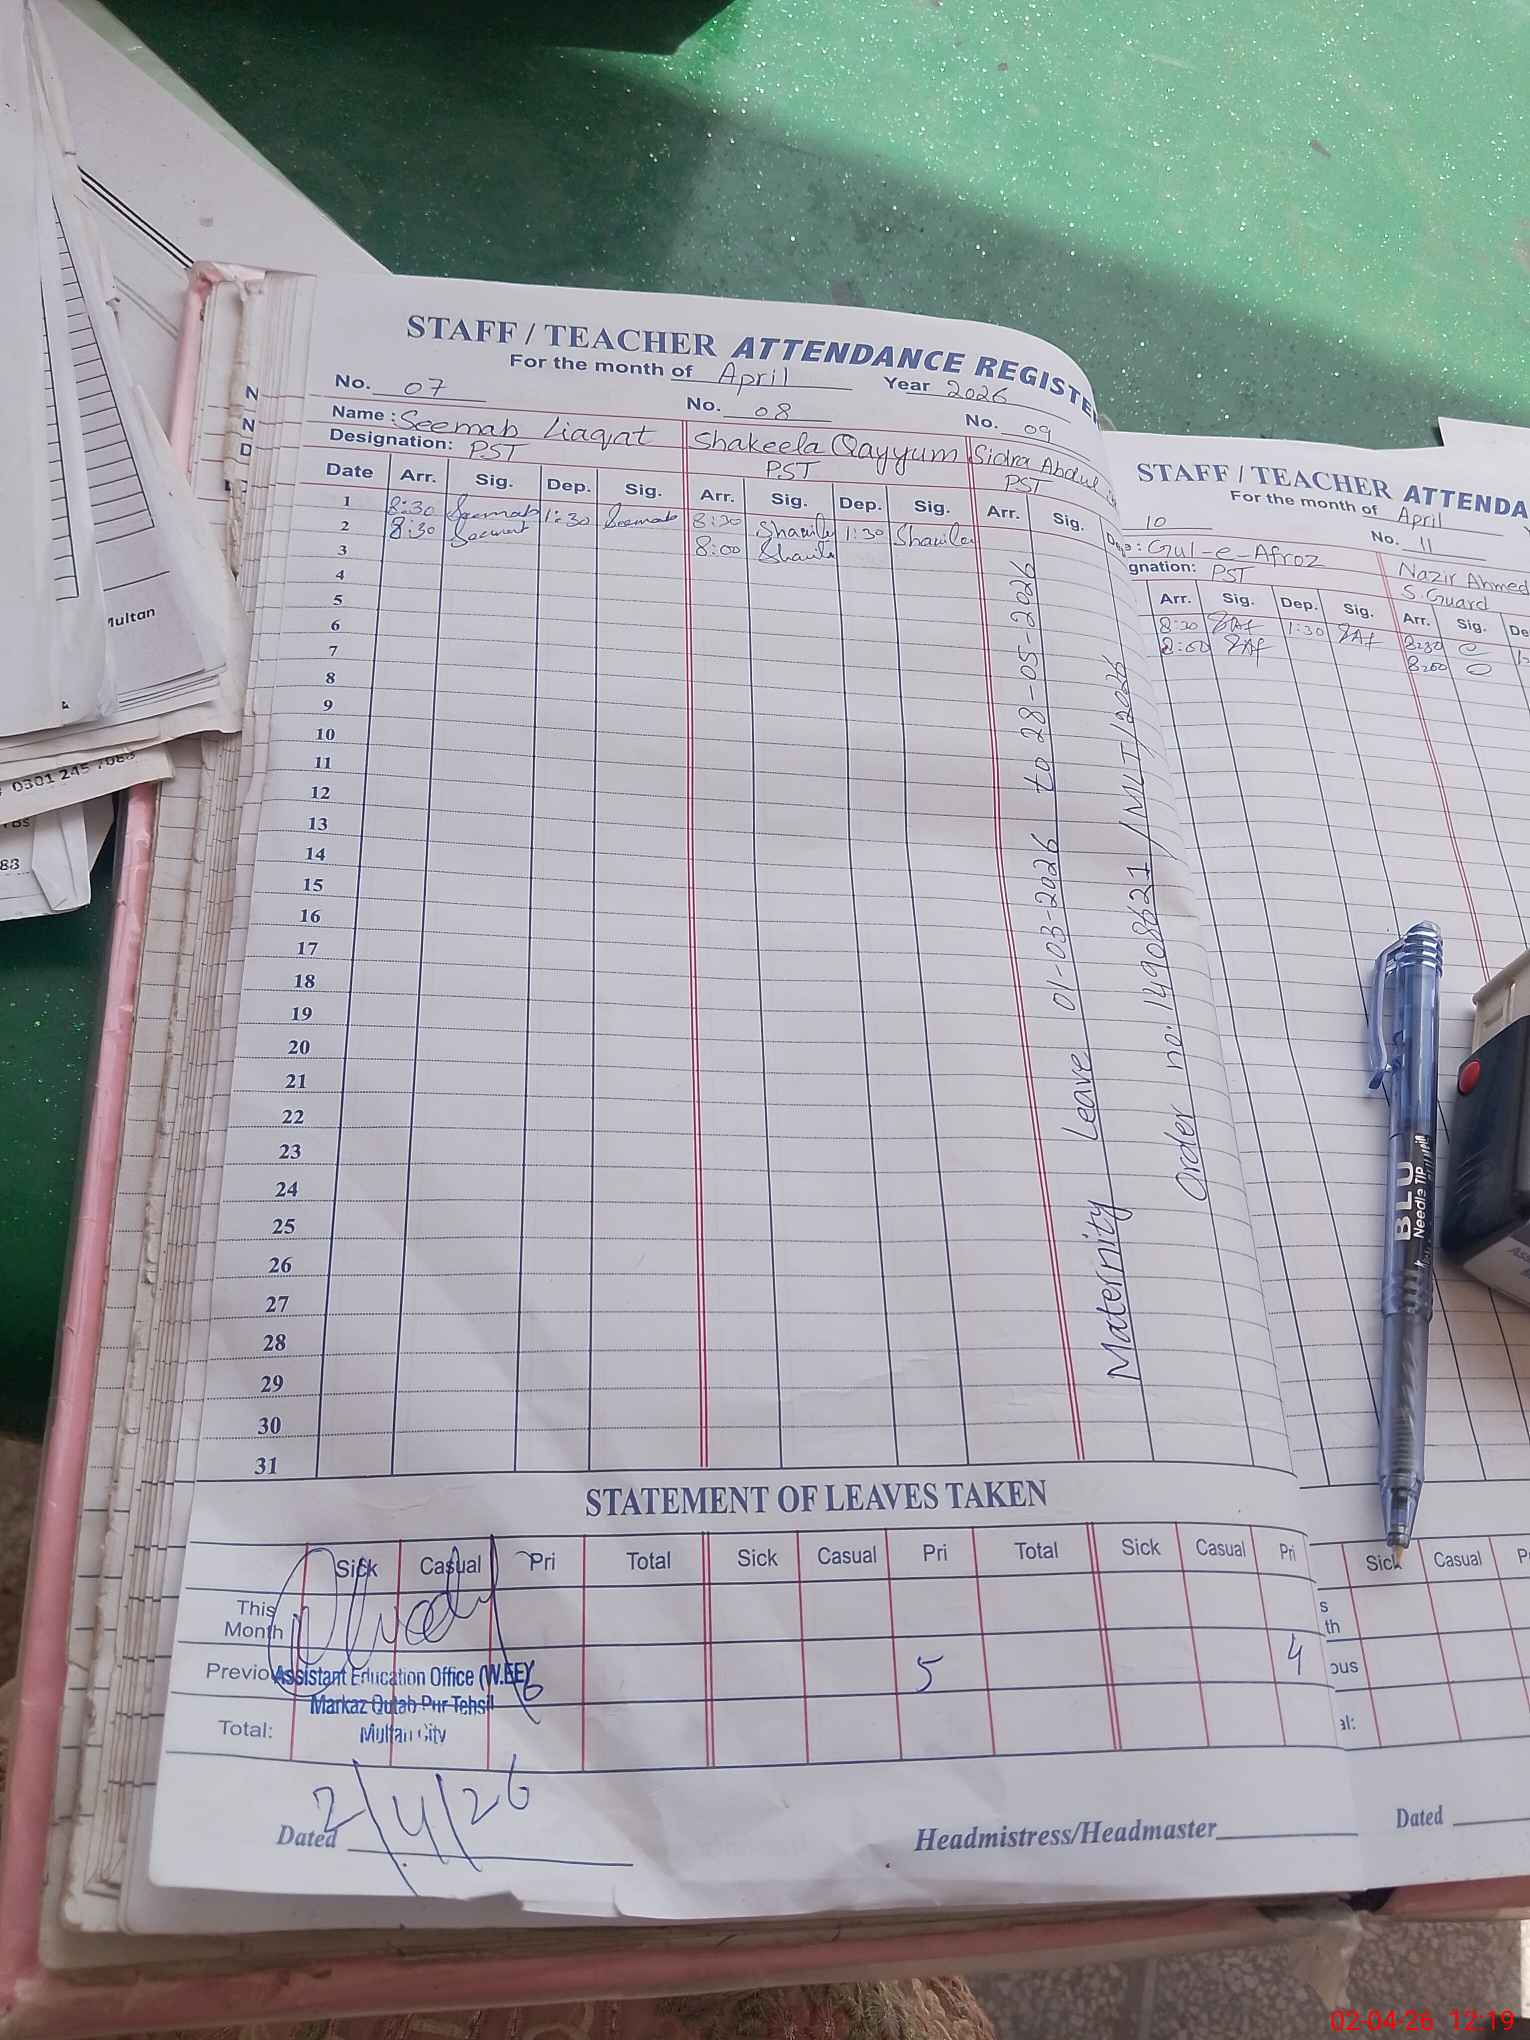 STAFF / TEACHER ATTENDANCE REGISTE
For the month of April Year 2026
No. 07 No. 08 No. 09
Name : Seemab Liaqat Shakeela Qayyum Sidra Abdul
Designation: PST PST PST
Date Arr. Sig. Dep. Sig. Arr. Sig. Dep. Sig. Arr. Sig. Dep
1 8:30 Seemab 1:30 Seemab 8:30 1:30
2 8:30 8:00
3
4
5
6
7
8
9
10
11
12
13
14
15
16
17
18
19
20
21
22
23
24
25
26
27
28
29
30
31
Maternity Leave 01-03-2026 to 28-05-2026
Order no. 14908621 /MLT/2026
STATEMENT OF LEAVES TAKEN
Sick Casual Pri Total Sick Casual Pri Total Sick Casual Pri
This
Month
Previo 6 5 4
Total:
Assistant Education Office (W.EE)
Markaz Qutab Pur Tehsil
Multan City
Dated 2/4/26
Headmistress/Headmaster
STAFF / TEACHER ATTENDA
For the month of April
10 No. 11
: Gul-e-Afroz Nazir Ahmed
gnation: PST S.Guard
Arr. Sig. Dep. Sig. Arr. Sig. De
8:30 1:30 8:30
8:00 8:00
Sick Casual P
s
th
ous
al:
Dated
ultan
0301 245 7088
83
BLU
Needle TIP
02-04-26 12:19